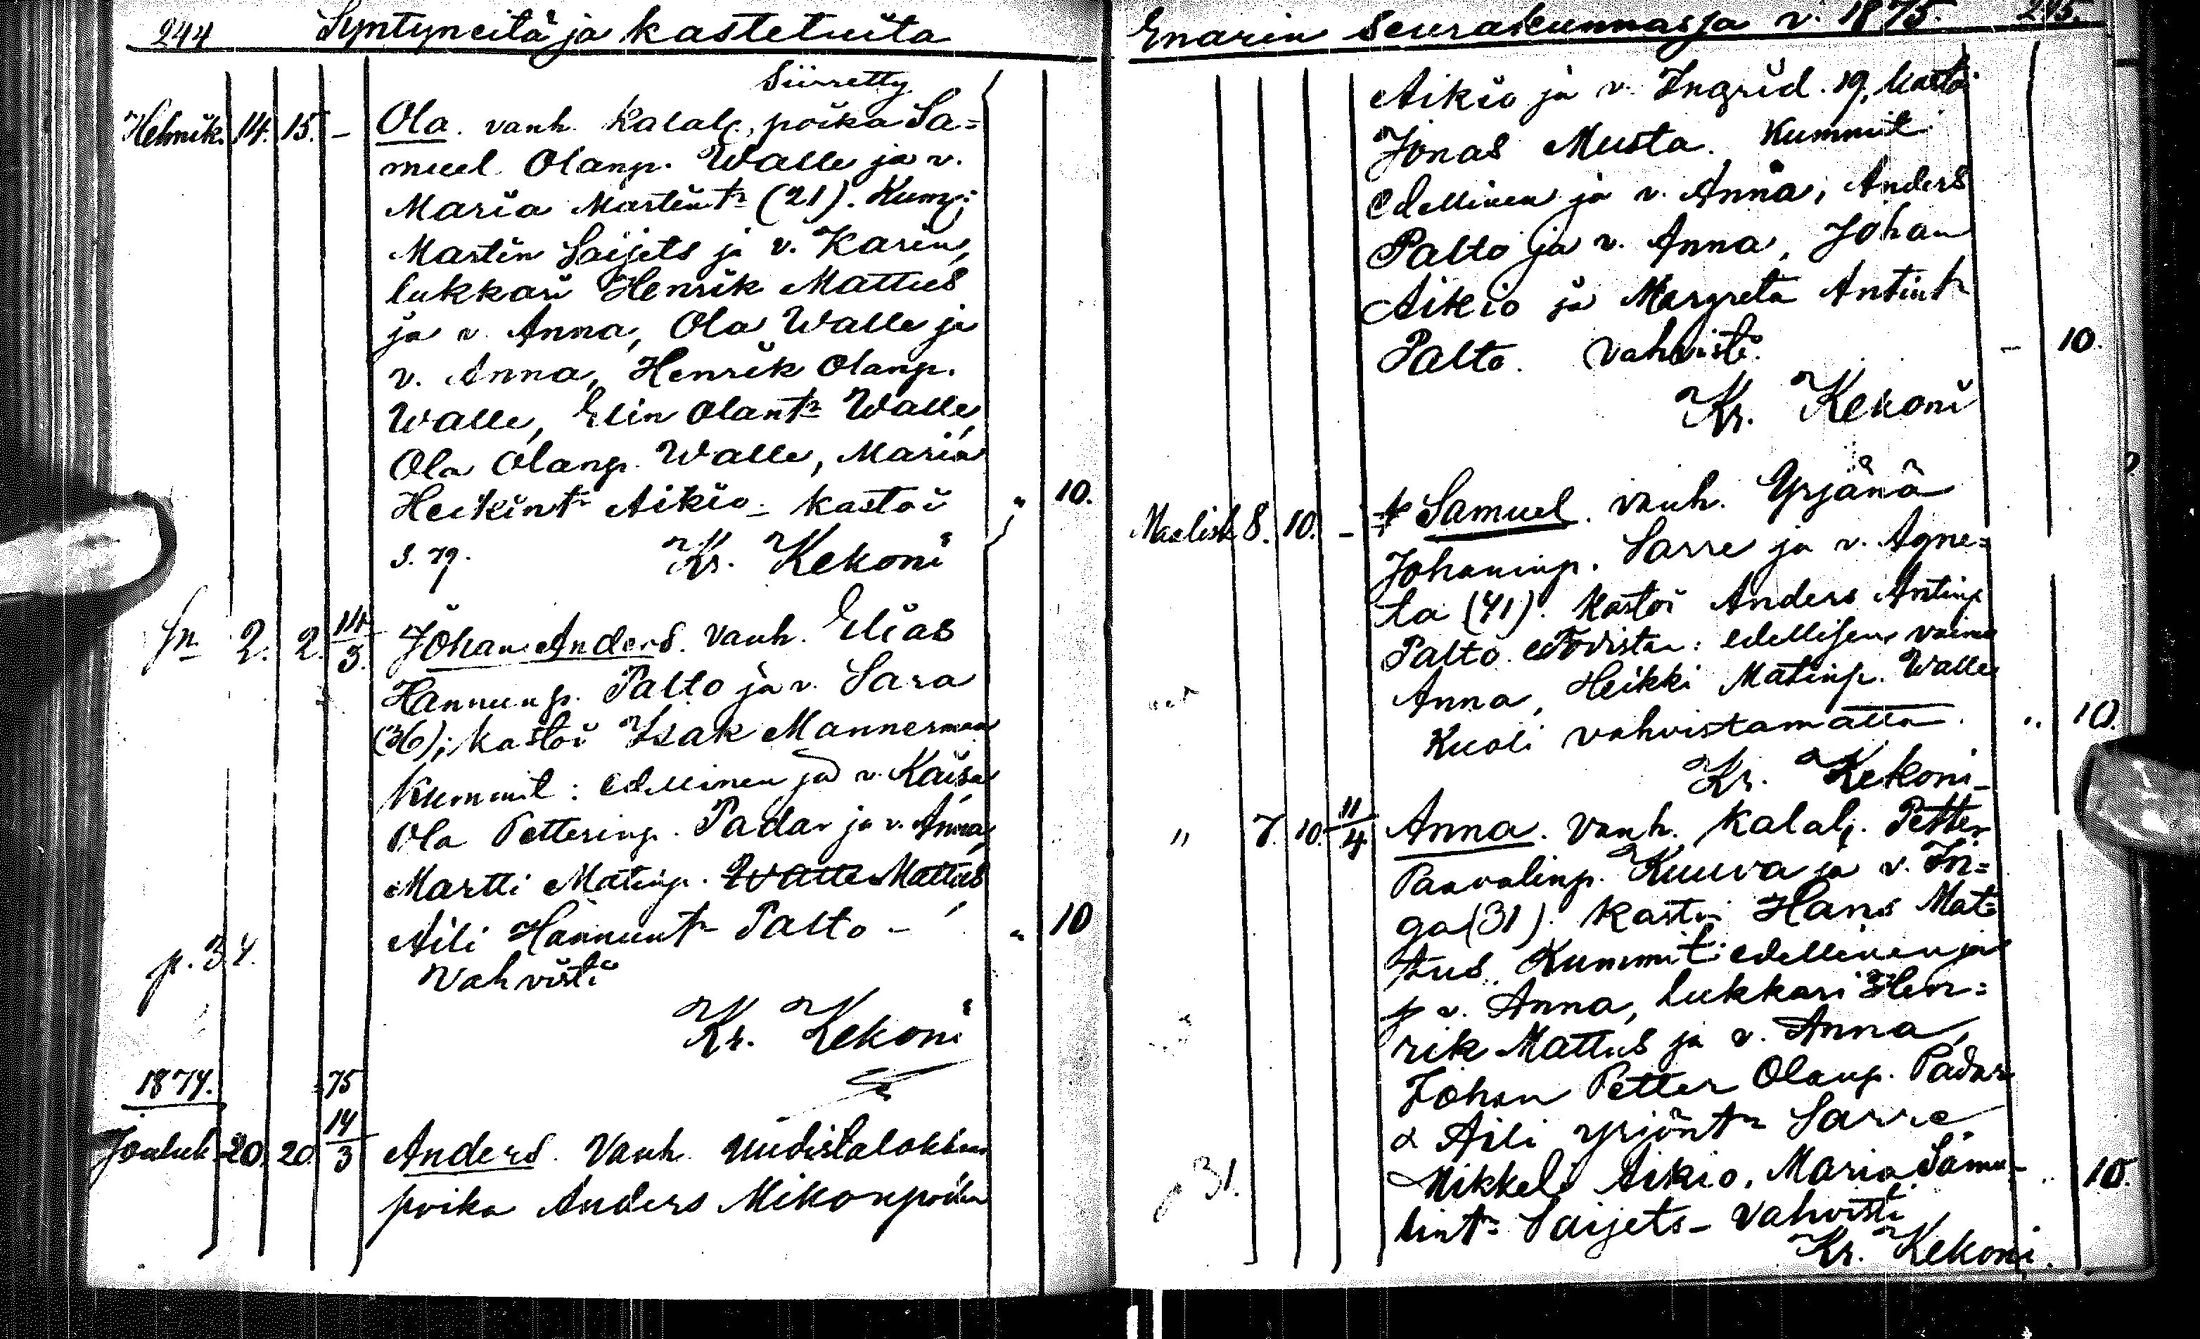 244 Syntyneitä ja kastetuita
Siirretty
Helmik. 14. 15. – Ola. vanh. kalalj. poika Sa=
muel Olanp. Walle ja v.
Maria Martint:r (21). Kump:
Martin Saijets ja v. Karin,
lukkari Henrik Mattus
ja v. Anna, Ola Walle ja
v. Anna, Henrik Olanp.
Walle, Elin Olant:r Walle,
Ola Olanp. Walle, Maria
Heikint:r Aikio – kastoi " 10.
S. 79. Kr. Kekoni
2. 2. 14/3. Johan Anders. Vanh. Elias
Hannunp. Palto ja v. Sara
(36); kastoi Isak Mannermaa
Kummit: edellinen ja v. Kaisa
Ola Petterinp. Padar ja v. Anna,
Martti Matinp. Walle Mattus
Aili Hannunt:r Palto – " 10
p. 34. Vahvisti
Kr. Kekoni
1874. 75
Jouluk. 20. 20. 14/3 Anders. Vanh. Uudistalokkaan
poika Anders Mikonpoika
Enarin Seurakunnassa v. 1875. 245.
Aikio ja v. Ingrid. 19, kastoi
Jonas Musta. Kummit
edellinen ja v. Anna, Anders
Palto ja v. Anna, Johan
Aikio ja Margreta Antint:r
Palto. Vahvisti. – 10.
Kr. Kekoni
Maalisk. 8. 10. – † Samuel. vanh. Yrjänä
Johaninp. Sarre ja v. Agne=
ta (41). kastoi Anders Antinp
Palto. Todistaa: edellisen vaimo
Anna, Heikki Matinp. Walle
Kuoli vahvistamatta. " 10.
Kr. Kekoni –
" 7. 10. 11/4. Anna. Vanh. kalalj. Petter
Paavalinp. Kuuva ja v. In=
ga (31). kastoi Hans Mat=
tus. Kummit: edellinen ja
v. Anna, lukkari Hen=
rik Mattus ja v. Anna,
Johan Petter Olanp. Padar
& Aili Yrjönt:r Sarre
p. 31. Mikkeli Aikio. Maria Samu- " 10.
lint:r Saijets – Vahvisti
Kr. Kekoni.